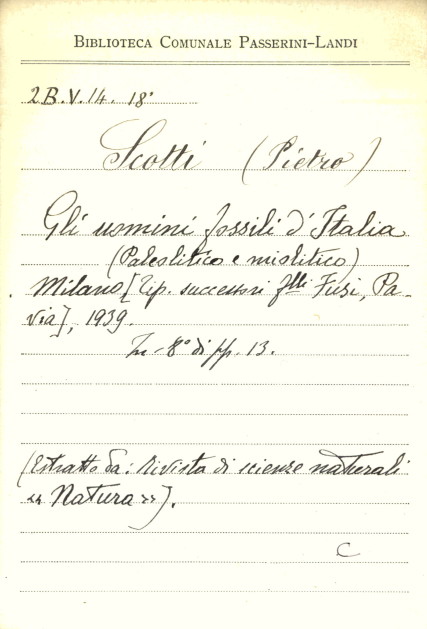 BIBLIOTECA COMUNALE PASSERINI-LANDI
2B.V.14. 18°
Scotti (Pietro)
Gli uomini fossili d'Italia
(Paleolitico e miolitico)
Milano, [Tip. successori f.lli Fusi, Pa-
via], 1939.
In-8° di pp. 13.
(Estratto da: Rivista di scienze naturali
«Natura»].
C